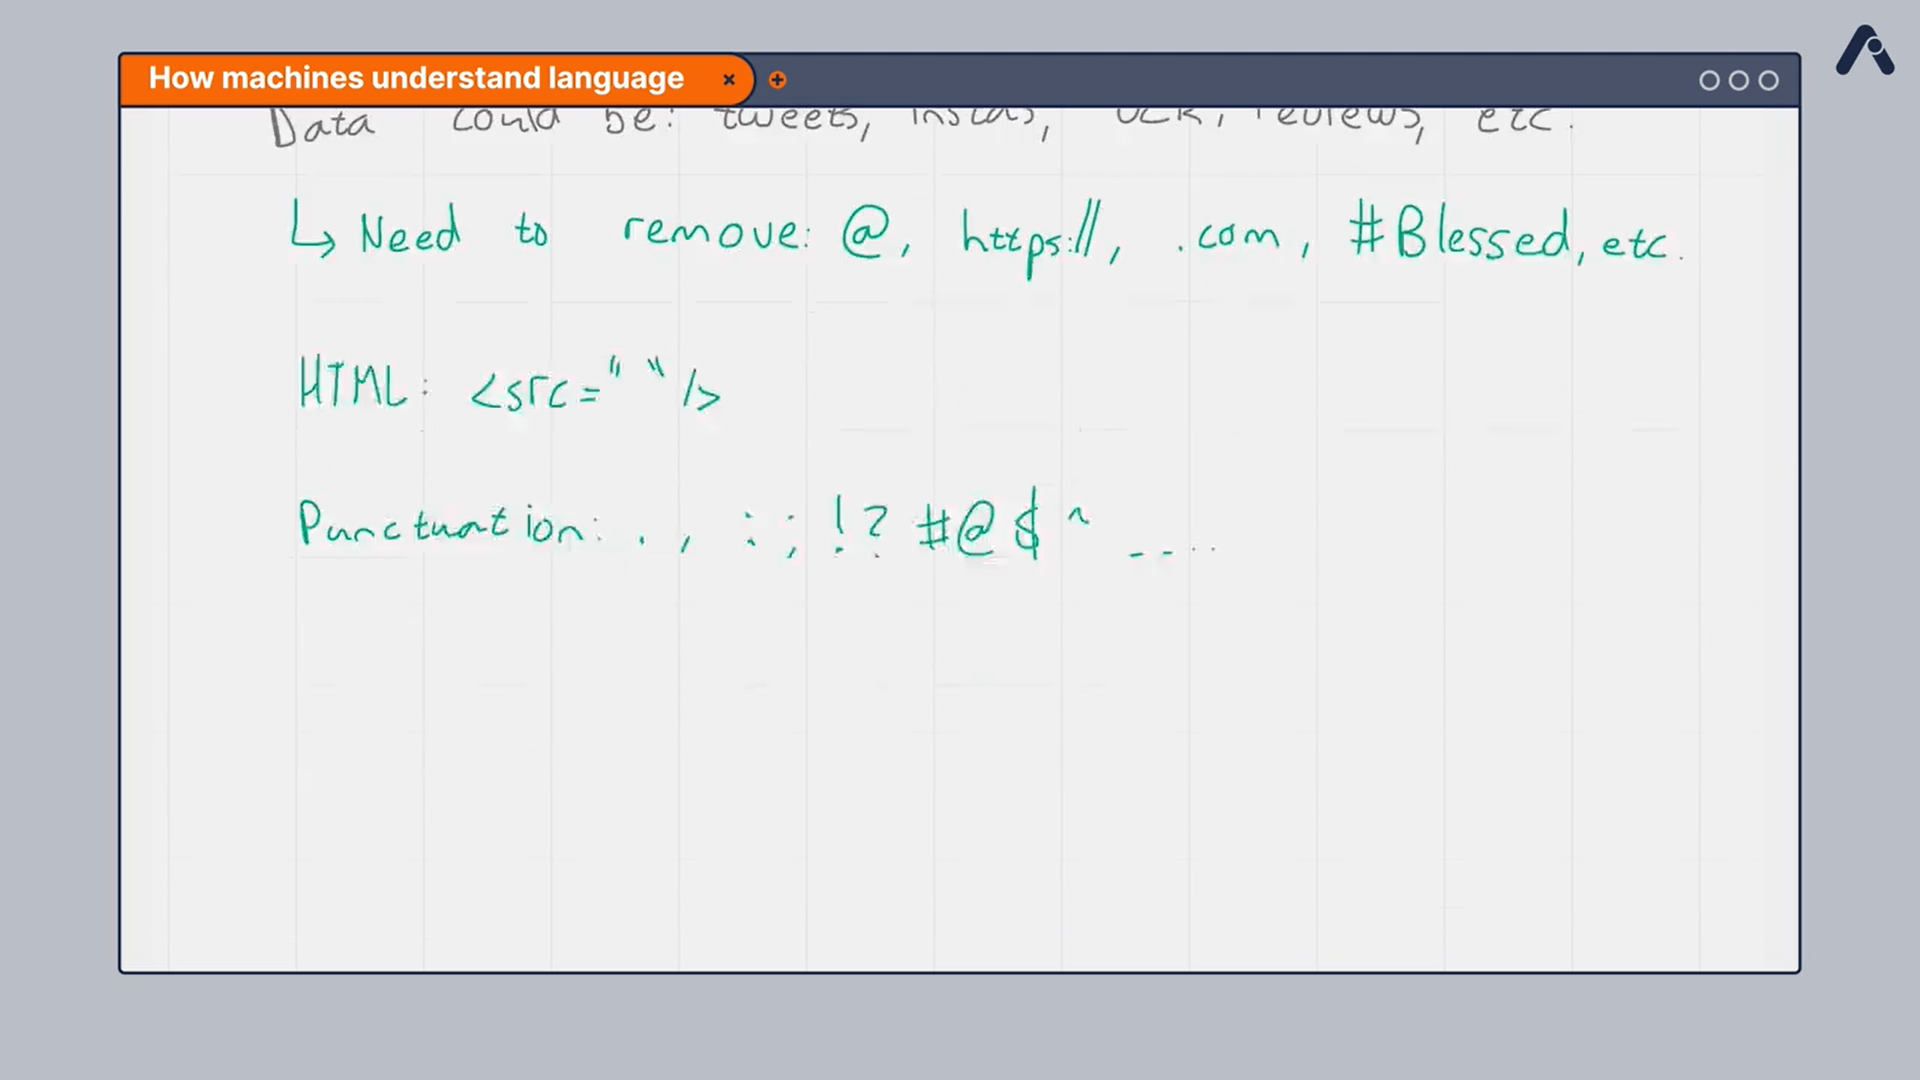 How machines understand language
Data could be: tweets, instas, OCR, reviews, etc.
↳ Need to remove: @, https://, .com, #Blessed, etc.
HTML: <src=" "/>
Punctuation: . , : ; ! ? # @ $ ^ _ - . .